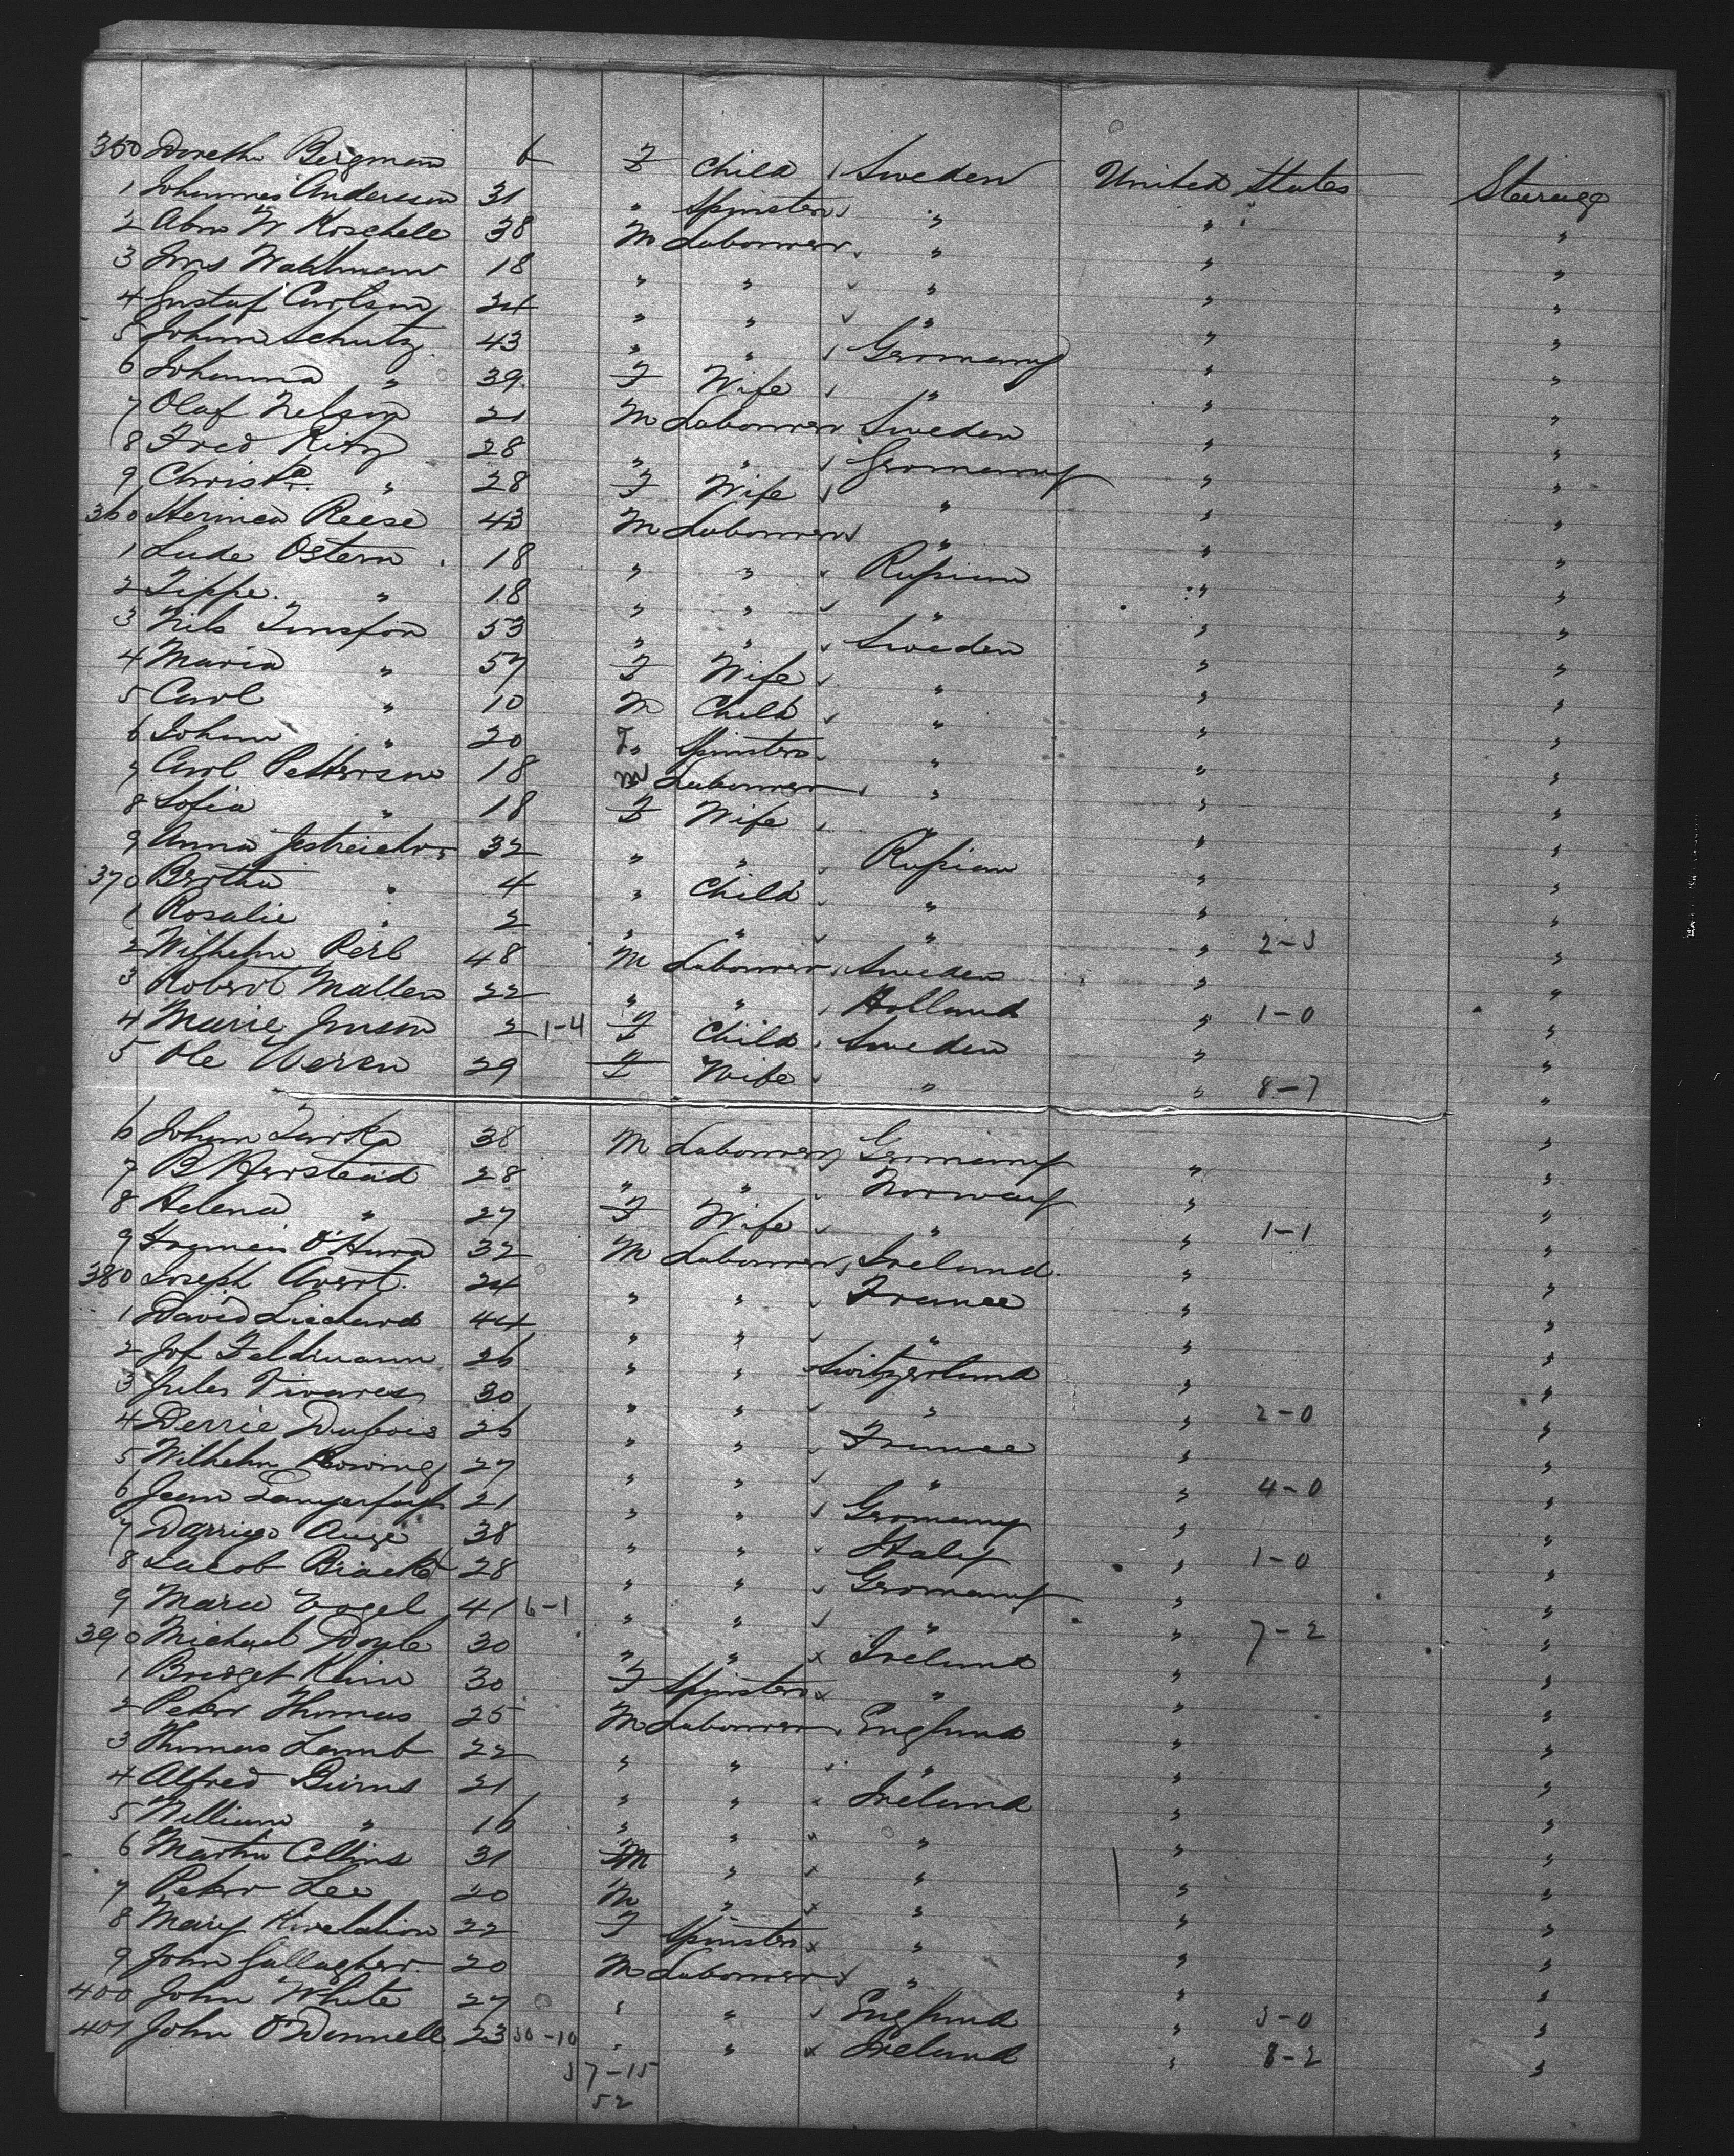 350 Doreth Bergman 6 F Child Sweden United States Steerage
1 Johannes Anderson 31 " Spinster " " "
2 Abm W Koschele 38 M Labourer " " "
3 Jns Wahlman 18 " " " " "
4 Gustaf Carlson 24 " " " " "
5 Johann Schutz 43 " " Germany " "
6 Johanna " 39 F Wife " " "
7 Olaf Nelson 21 M Labourer Sweden " "
8 Fred Ritz 28 " " Germany " "
9 Christa " 28 F Wife " " "
360 Hermen Reese 43 M Labourer " " "
1 Lude Ostern 18 " " Russian " "
2 Zippe " 18 " " " " "
3 Nils 53 " " Sweden " "
4 Maria " 57 F Wife " " "
5 Carl " 10 M Child " " "
6 Johan " 20 F Spinster " " "
7 Carl Petterson 18 M Labourer " " "
8 Sofia " 18 F Wife " " "
9 Anna 32 " " Russian " "
370 Bertha " 4 " Child " " "
1 Rosalie " 2 " " " " 2-3 "
2 Wilhelm Perl 48 M Labourer Sweden " "
3 Robert Mallen 22 " " Holland " 1-0 "
4 Marie Jnson 2 1-4 F Child Sweden " "
5 Ole Weren 29 F Wife " " 8-7 "
6 Johan 38 M Labourer Germany " "
7 B Herstead 28 " " Norway " "
8 Helena " 27 F Wife " " 1-1 "
9 O'Hara 32 M Labourer Ireland " "
380 Joseph Avert 24 " " France " "
1 David Liechard 44 " " " " "
2 Jof Feldmann 26 " " Switzerland " "
3 Jules Tivares 30 " " " " 2-0 "
4 Perrie Dubois 26 " " France " "
5 Wilhelm 27 " " " " 4-0 "
6 Jean 21 " " Germany " "
7 Darrigo Auge 38 " " Italy " 1-0 "
8 Jacob 28 " " Germany " "
9 Marie Vogel 41 6-1 " " " " 7-2 "
390 Michael Doyle 30 " " x Ireland " "
1 Bridget Klein 30 F Spinster x " " "
2 Peter Thomas 25 M Labourer England " "
3 Thomas Lamb 22 " " " " "
4 Alfred Burns 21 " " Ireland " "
5 William " 16 " " " " "
6 Martin Collins 31 M " x " " "
7 Peter Lee 20 M " x " " "
8 Mary 22 F Spinster x " " "
9 John Gallagher 20 M Labourer " " "
400 John White 27 " " England " 3-0 "
401 John O'Donnell 23 30-10 " " x Ireland " 8-2 "
37-15
52